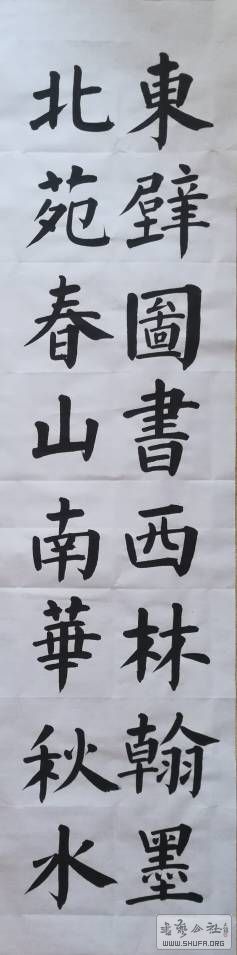 東壁圖書西林翰墨
北苑春山南華秋水
WWW.SHUFA.ORG